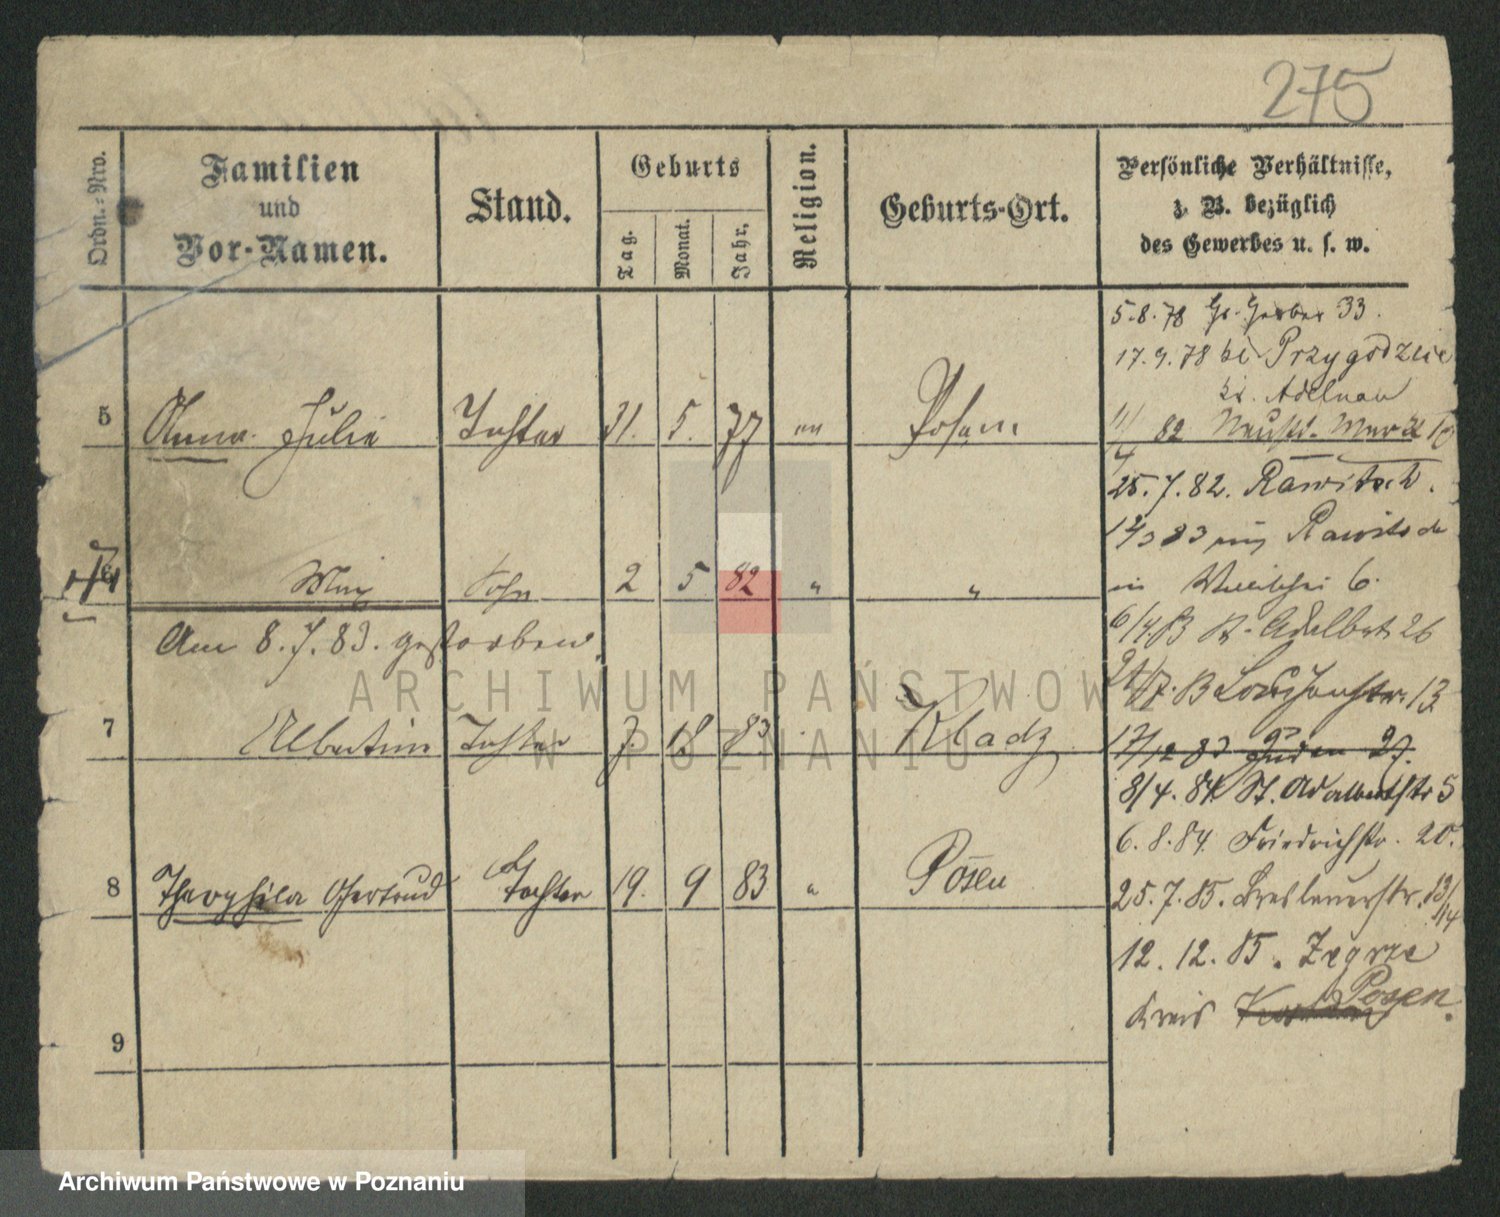 275
Ordn.-Nro.
Familien
und
Vor-Namen.
Stand.
Geburts
Tag.
Monat.
Jahr.
Religion.
Geburts-Ort.
Persönliche Verhältnisse,
z. B. bezüglich
des Gewerbes u. s. w.
5.8.78 Gr. Gerber 33.
17.9.78 bei Przygodzice
Kr. Adelnau
5 Anna Julie Tochter 31. 5. 77 Posen
82 Neust. Markt 10
25.7.82. Rawitsch.
83 Rawitsch
Max Sohn 2 5 82 " "
in 6.
Am 8.7.83. gestorben.
6/4.83 St. Adelbert 26
13
7 Albertine Tochter 7. 18 83
17/12 83 Juden 27.
8/4.84. St. Adalbertstr 5
6.8.84. Friedrichstr. 20.
8 Theophila Gertrud Tochter 19. 9 83 " Posen
25.7.85. Breslauerstr. 13/14
12.12.85. Zegrze
Kreis Posen.
9
ARCHIWUM PAŃSTWOWE
W POZNANIU
Archiwum Państwowe w Poznaniu